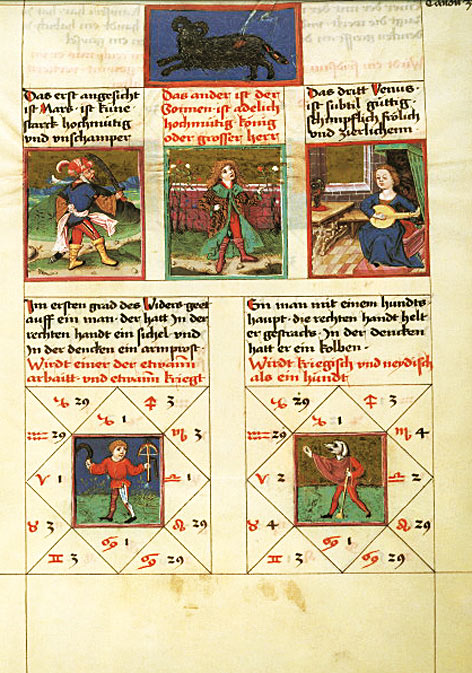 Canon
Das erst angesicht
ist Mars · ist küne
starck hochmütig
und unschamper
Das ander ist der
Sonnen · ist adelich
hochmütig · könig
oder grosser herr
Das dritt Venus ·
ist subtil güttig
schimpflich frölich
und zierlichenn
Im ersten grad des Widers · geet
auff ein man · der hatt In der
rechten handt ein sichel · und
In der dencken ein armprost ·
Wirdt einer der etwann
arbaitt · und etwann kriegt
Ein man mit einem hundts
haupt · die rechten handt helt
er gestracks · In der dencken
hatt er ein kolben ·
Wirdt kriegisch und neydisch
als ein hundt
♑ 29 ♐ 3
♑ 1
♒ 29 ♏ 3
♈ 1 ♎ 1
♉ 3 ♌ 29
♋ 1
♊ 3 ♋ 29
♑ 29 ♐ 3
♑ 1
♒ 29 ♏ 4
♈ 2 ♎ 2
♉ 4 ♌ 29
♋ 1
♊ 3 ♋ 29